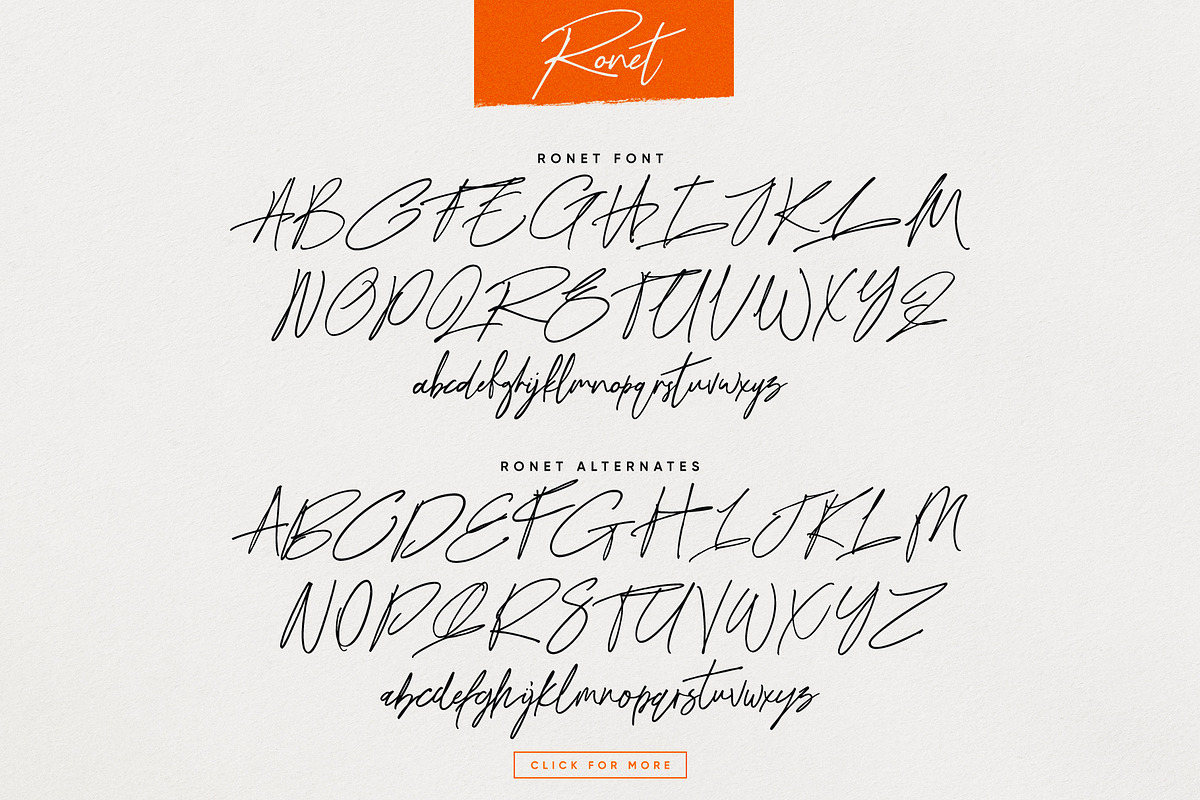 Ronet
RONET FONT
ABCFEGHIJKLM
NOPQRSTUVWXYZ
abcdefghijklmnopqrstuvwxyz
RONET ALTERNATES
ABCDEFGHIJKLM
NOPQRSTUVWXYZ
abcdefghijklmnopqrstuvwxyz
CLICK FOR MORE